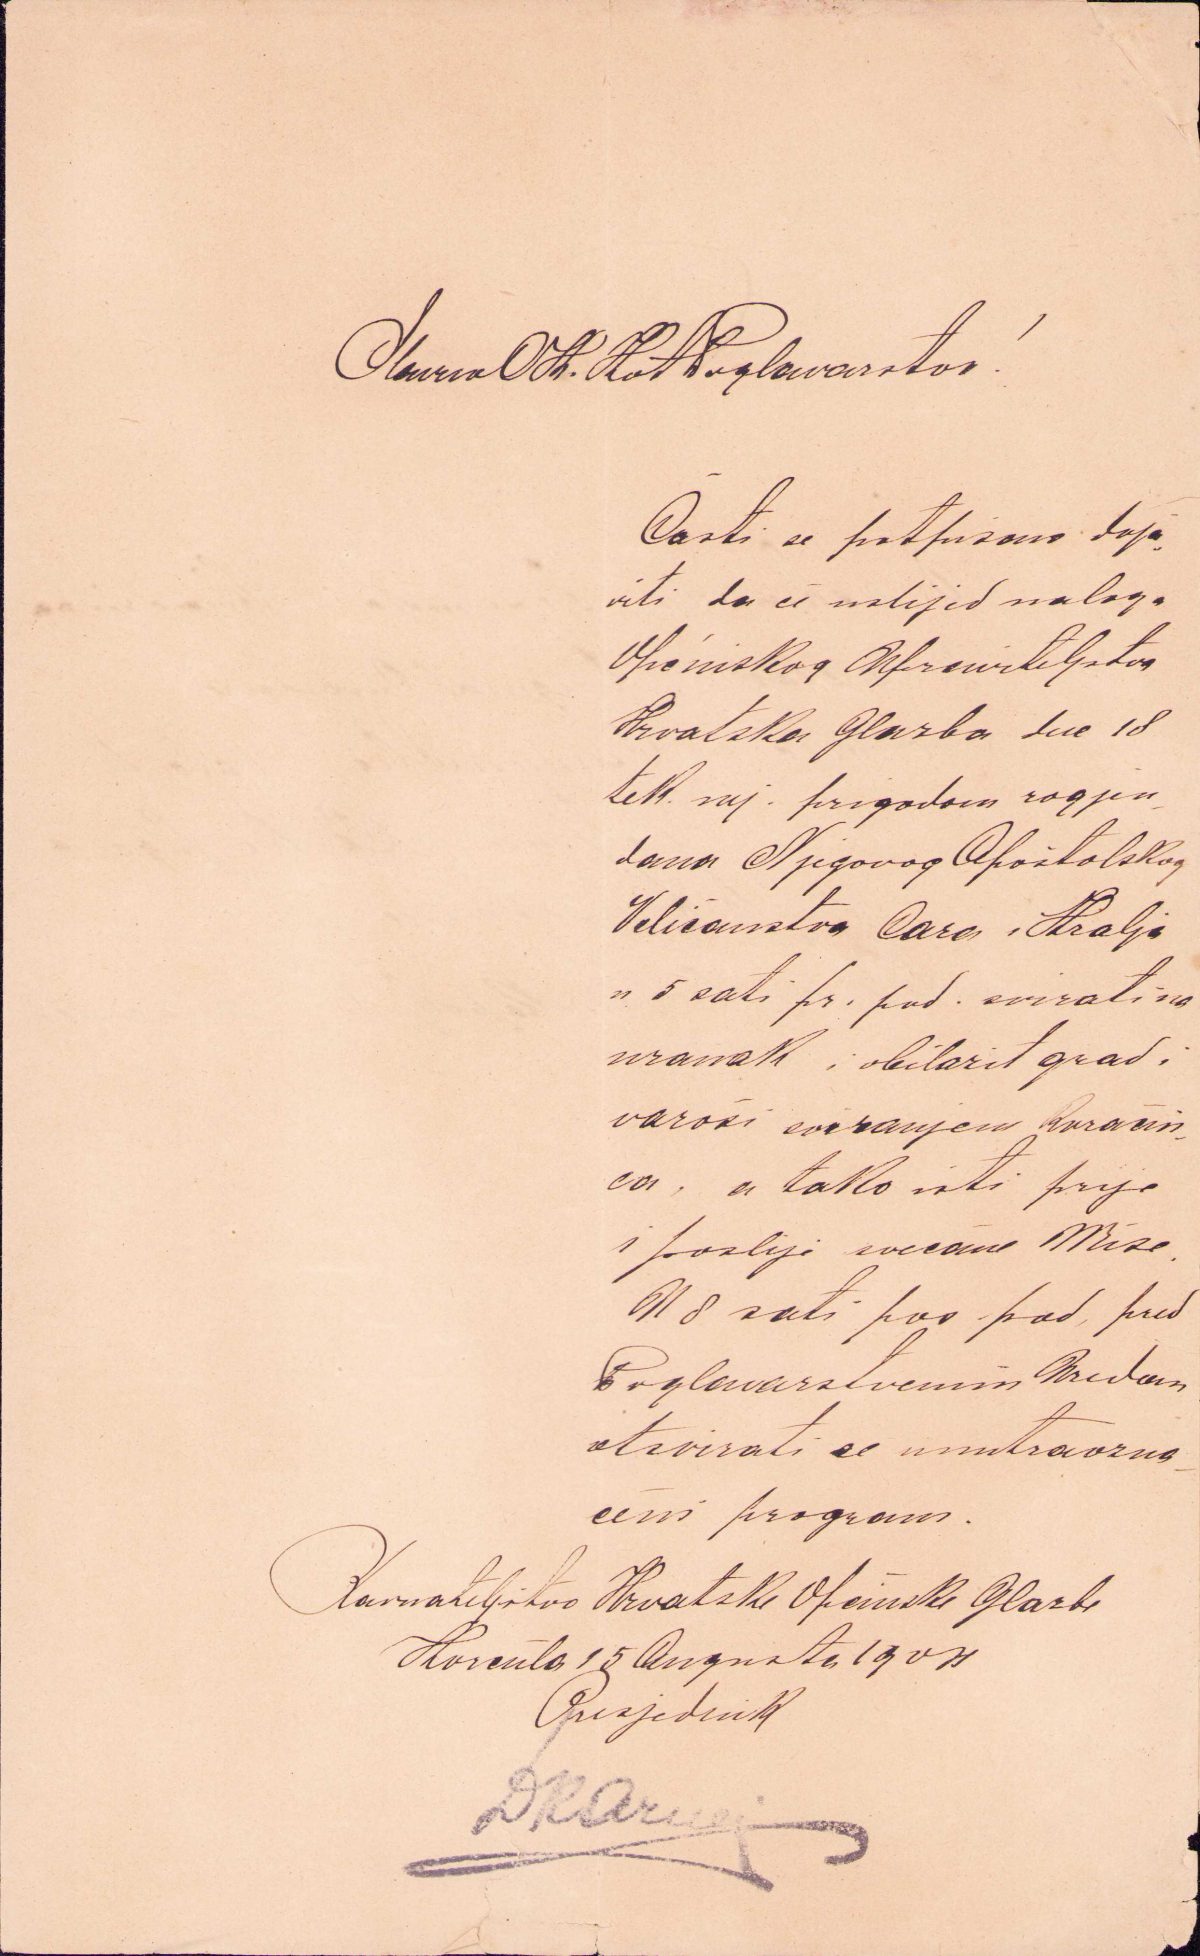 Slavno C.K. Kot. Poglavarstvo!
Časti se potpisano doja-
viti da će uslijed naloga
Općinskog Upraviteljstva
Hrvatska Glazba dne 18
tek. mj. prigodom rogjen-
dana Njegovog Apoštolskog
Veličanstva Cara i Kralja
u 5 sati pr. pod. svirati na
uranak i obilazit grad i
varoši sviranjem koračni-
ca, a tako isti prije
i poslije svečane Mise.
U 8 sati po pod. pred
Poglavarstvenim Uredom
otsvirati će unutraozna-
čeni program.
Ravnateljstvo Hrvatske Općinske Glazbe
Korčula 15 Augusta
Presjednik